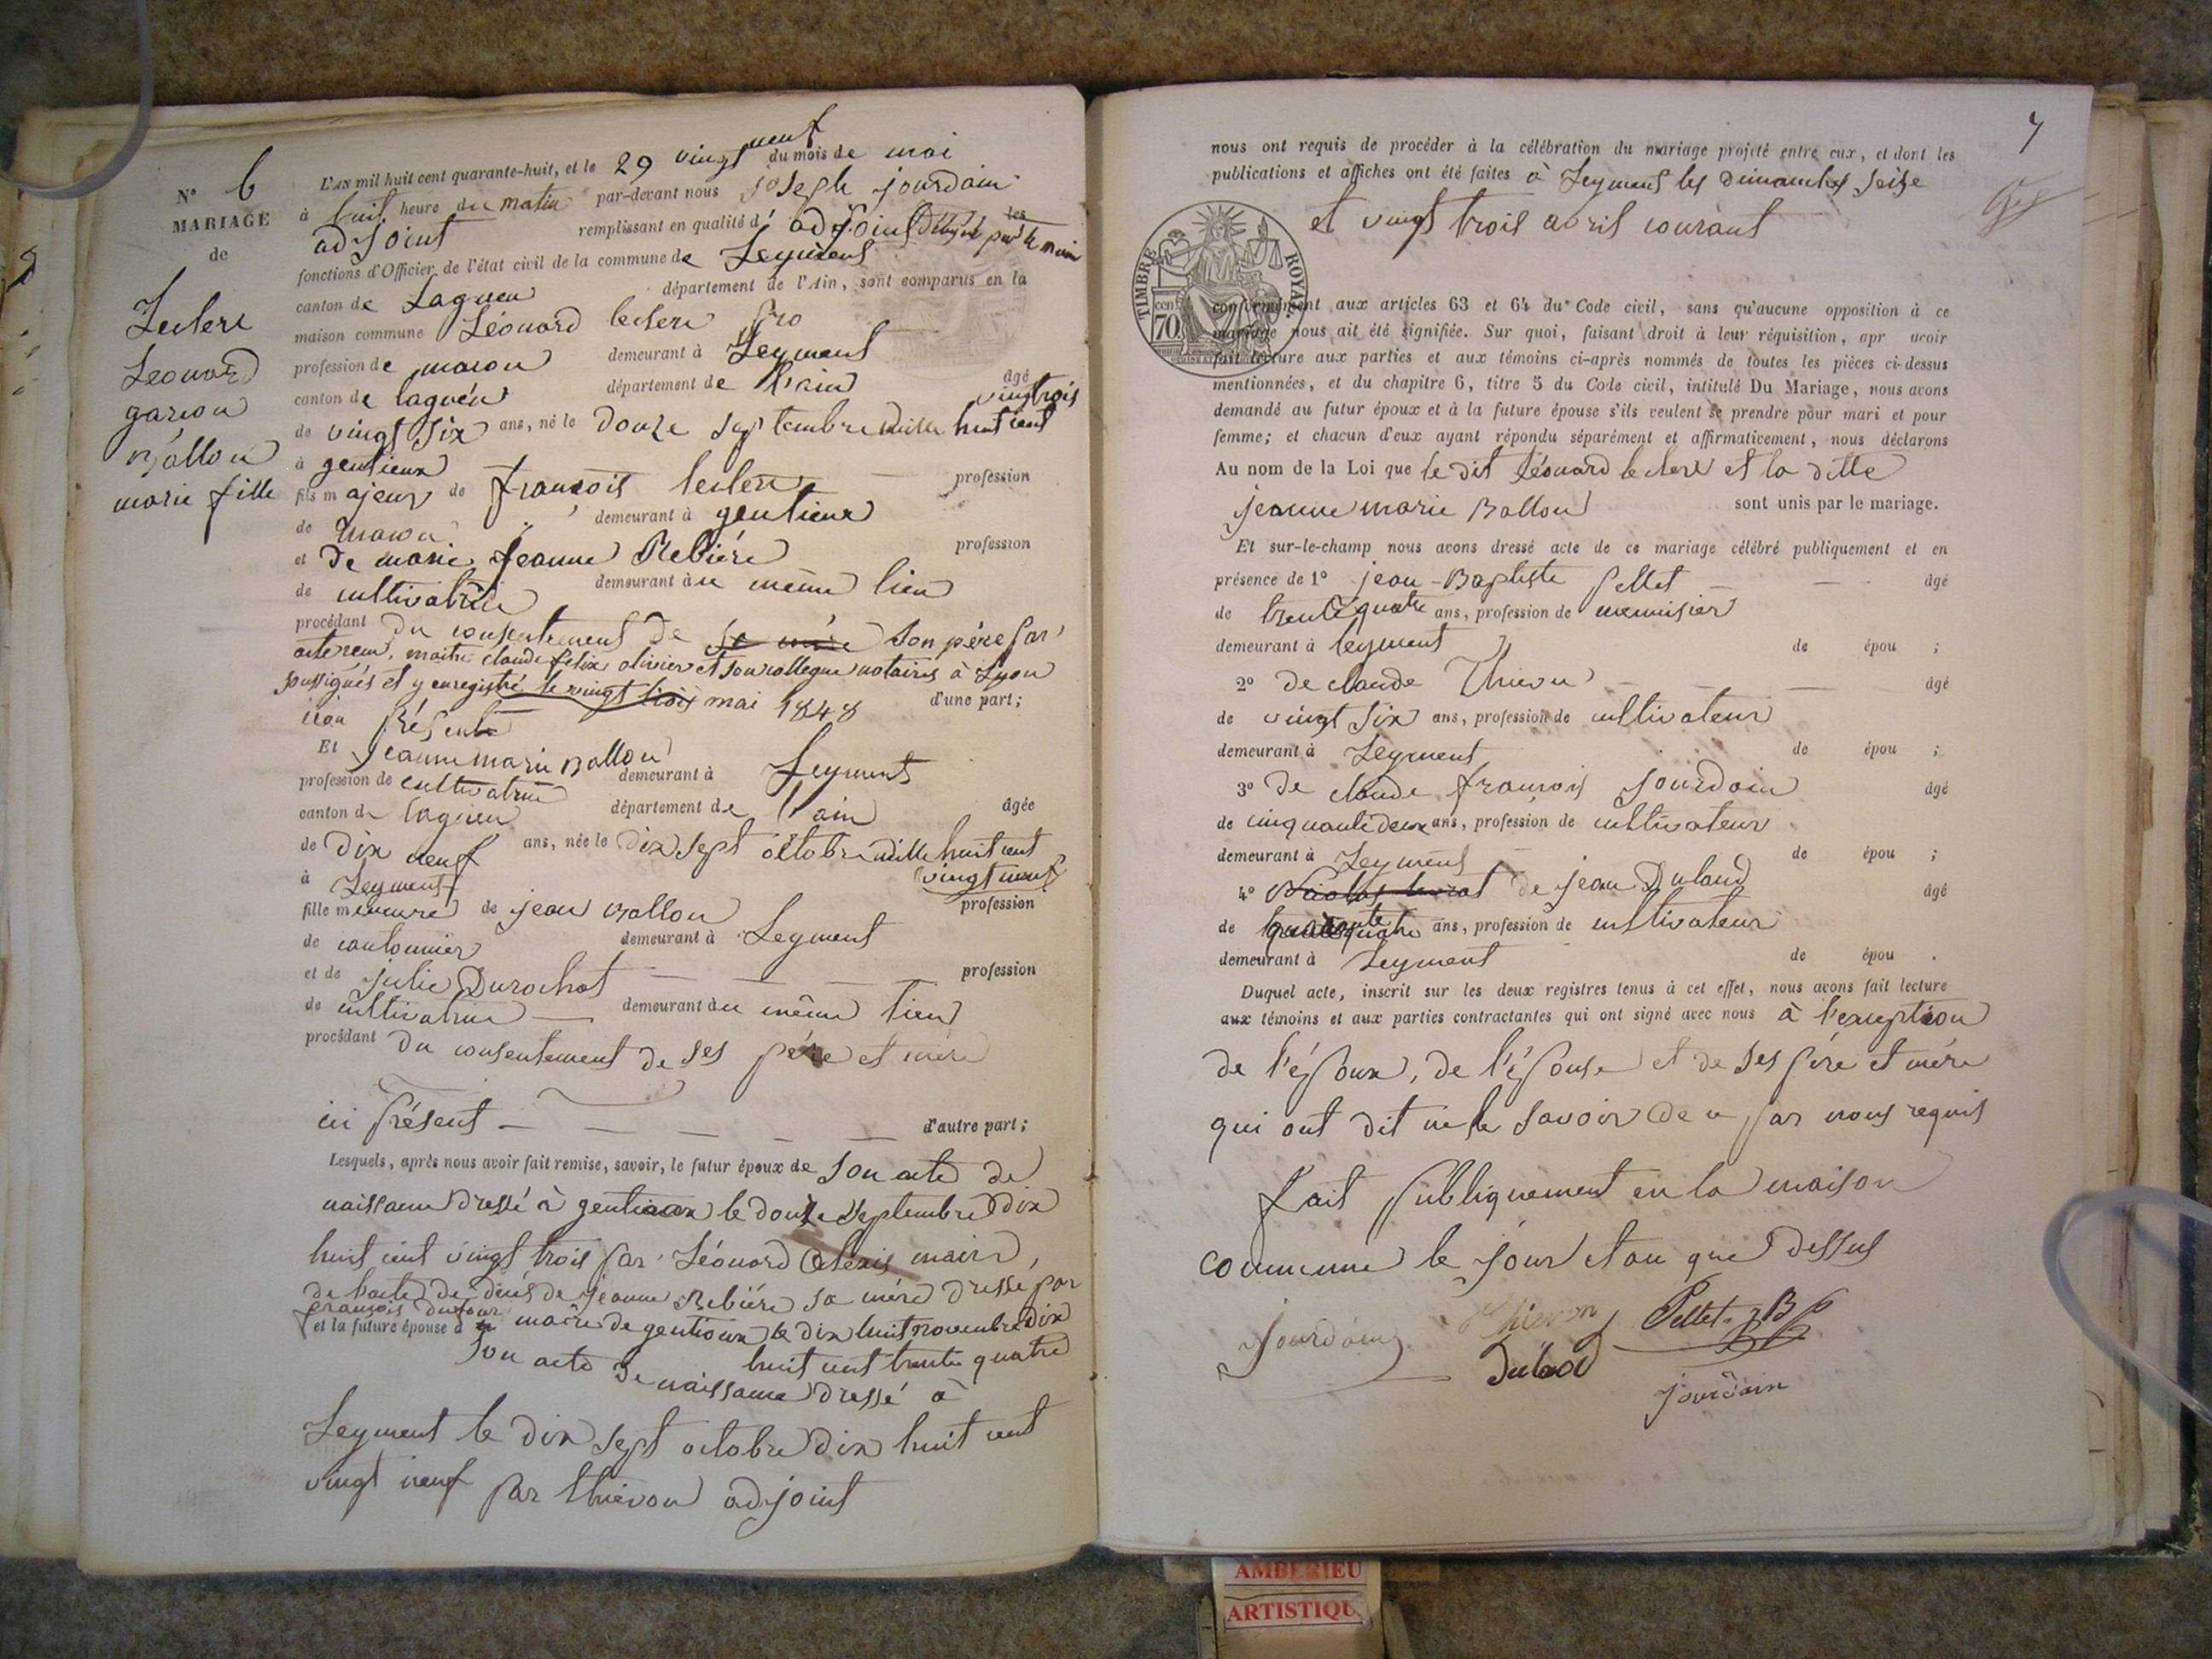 N° 6
MARIAGE
de
Leclerc
Léonard
garcon
Ballon
marie fille
L'AN mil huit cent quarante-huit, et le 29 vingt neuf du mois de mai
à huit heure du matin par-devant nous joseph jourdain
adjoint remplissant en qualité d' adjoint délégué par le maire les
fonctions d'Officier de l'état civil de la commune de Leyment
canton de Lagneu département de l'Ain, sont comparus en la
maison commune Léonard leclerc
profession de macon demeurant à Leyment
canton de lagneu département de l'ain âgé
de vingt six ans, né le douze septembre mille huit cent vingtrois
à gentieux
fils majeur de françois leclerc profession
de macon demeurant à gentieux
et de marie jeanne Rebiére profession
de cultivatrice demeurant au même lieu
procédant du consentement de sa mère son père par
acte recu, maitre claude felix olivier et son collegue notaires à Lyon
soussignés et y enregistré le vingt trois mai 1848 d'une part;
présent
Et jeanne marie Ballon
profession de cultivatrice demeurant à Leyment
canton de lagneu département de l'ain âgée
de dix neuf ans, née le dix sept octobre mille huit cent
à Leyment vingt neuf
fille mineure de jean Ballon profession
de cantonnier demeurant à Leyment
et de julie Durochat profession
de cultivatrice demeurant au même lieu
procédant du consentement de ses père et mère
ici présent d'autre part;
Lesquels, après nous avoir fait remise, savoir, le futur époux de son acte de
naissance dressé à gentioux le douze septembre dix
huit cent vingt trois par Léonard Alexis maire,
de l'acte de décés de jeanne Rebiére sa mère dressé par
françois dufour maire de gentioux le dix huit novembre dix
huit cent trente quatre
et la future épouse d
son acte de naissance dressé à
Leyment le dix sept octobre dix huit cent
vingt neuf par thievon adjoint
7
nous ont requis de procéder à la célébration du mariage projeté entre eux, et dont les
publications et affiches ont été faites à Leyment les dimanches seize
et vingt trois avril courant
TIMBRE ROYAL
70 cent
conformément aux articles 63 et 64 du Code civil, sans qu'aucune opposition à ce
mariage nous ait été signifiée. Sur quoi, faisant droit à leur réquisition, apr avoir
fait lecture aux parties et aux témoins ci-après nommés de toutes les pièces ci-dessus
mentionnées, et du chapitre 6, titre 5 du Code civil, intitulé Du Mariage, nous avons
demandé au futur époux et à la future épouse s'ils veulent se prendre pour mari et pour
femme; et chacun d'eux ayant répondu séparément et affirmativement, nous déclarons
Au nom de la Loi que le dit Léonard leclerc et la ditte
jeanne marie Ballon sont unis par le mariage.
Et sur-le-champ nous avons dressé acte de ce mariage célébré publiquement et en
présence de 1° jean-Baptiste pellet âgé
de trente quatre ans, profession de menuisier
demeurant à leyment de épou ;
2° de claude Thievon âgé
de vingt six ans, profession de cultivateur
demeurant à Leyment de épou ;
3° de claude françois jourdain âgé
de cinquante deux ans, profession de cultivateur
demeurant à Leyment de épou ;
4° de jean Dulaud âgé
de ans, profession de cultivateur
demeurant à Leyment de épou .
Duquel acte, inscrit sur les deux registres tenus à cet effet, nous avons fait lecture
aux témoins et aux parties contractantes qui ont signé avec nous à l'exception
de l'époux, de l'épouse et de ses pére et mére
qui ont dit ne le savoir de ce par nous requis
fait publiquement en la maison
commune le jour et an que dessus
Jourdain Thievon Pellet J B
Dulaod
jourdain
AMBERIEU
ARTISTIQU